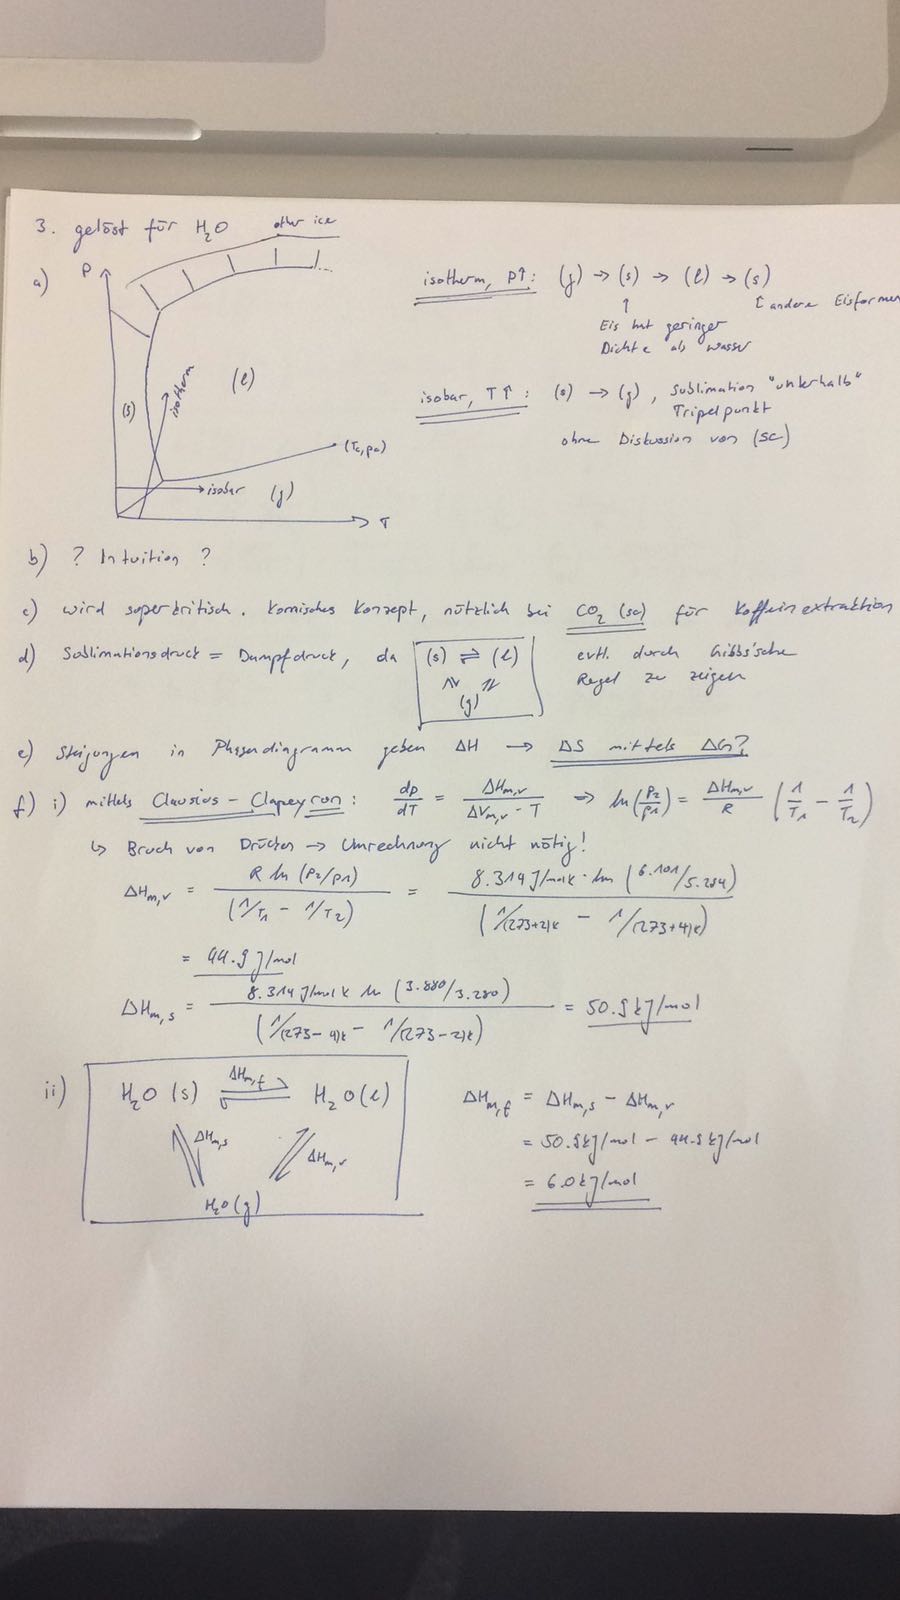 3. gelöst für H₂O
other ice
a)
P
isotherm, p↑: (g) → (s) → (l) → (s)
↑ ↑ andere Eisformen
Eis hat geringer
Dichte als wasser
(s)
isotherm
(l)
isobar, T↑: (s) → (g), Sublimation "unterhalb"
Tripelpunkt
ohne Diskussion von (sc)
(Tc, pc)
isobar
(g)
T
b) ? Intuition ?
c) wird superkritisch. komisches Konzept, nützlich bei CO₂ (sc) für Koffeinextraktion
d) Sublimationsdruck = Dampfdruck, da (s) ⇌ (l) evtl. durch Gibbs'sche
⇅ ⇅ Regel zu zeigen
(g)
e) Steigungen in Phasendiagramm geben ΔH → ΔS mittels ΔG?
f) i) mittels Clausius-Clapeyron: dp/dT = ΔHm,v / ΔVm,v · T ⇒ ln(p2/p1) = ΔHm,v/R (1/T1 − 1/T2)
↳ Bruch von Drücken → Umrechnung nicht nötig!
ΔHm,v = R ln (p2/p1) / (1/T1 − 1/T2) = 8.314 J/mol K · ln (6.101/5.294) / (1/(273+2)K − 1/(273+4)K)
= 44.9 J/mol
ΔHm,s = 8.314 J/mol K ln (3.880/3.280) / (1/(273−4)K − 1/(273−2)K) = 50.9 kJ/mol
ii)
H₂O (s) ⇌ H₂O (l)
ΔHm,f
ΔHm,s
ΔHm,v
H₂O (g)
ΔHm,f = ΔHm,s − ΔHm,v
= 50.9 kJ/mol − 44.9 kJ/mol
= 6.0 kJ/mol